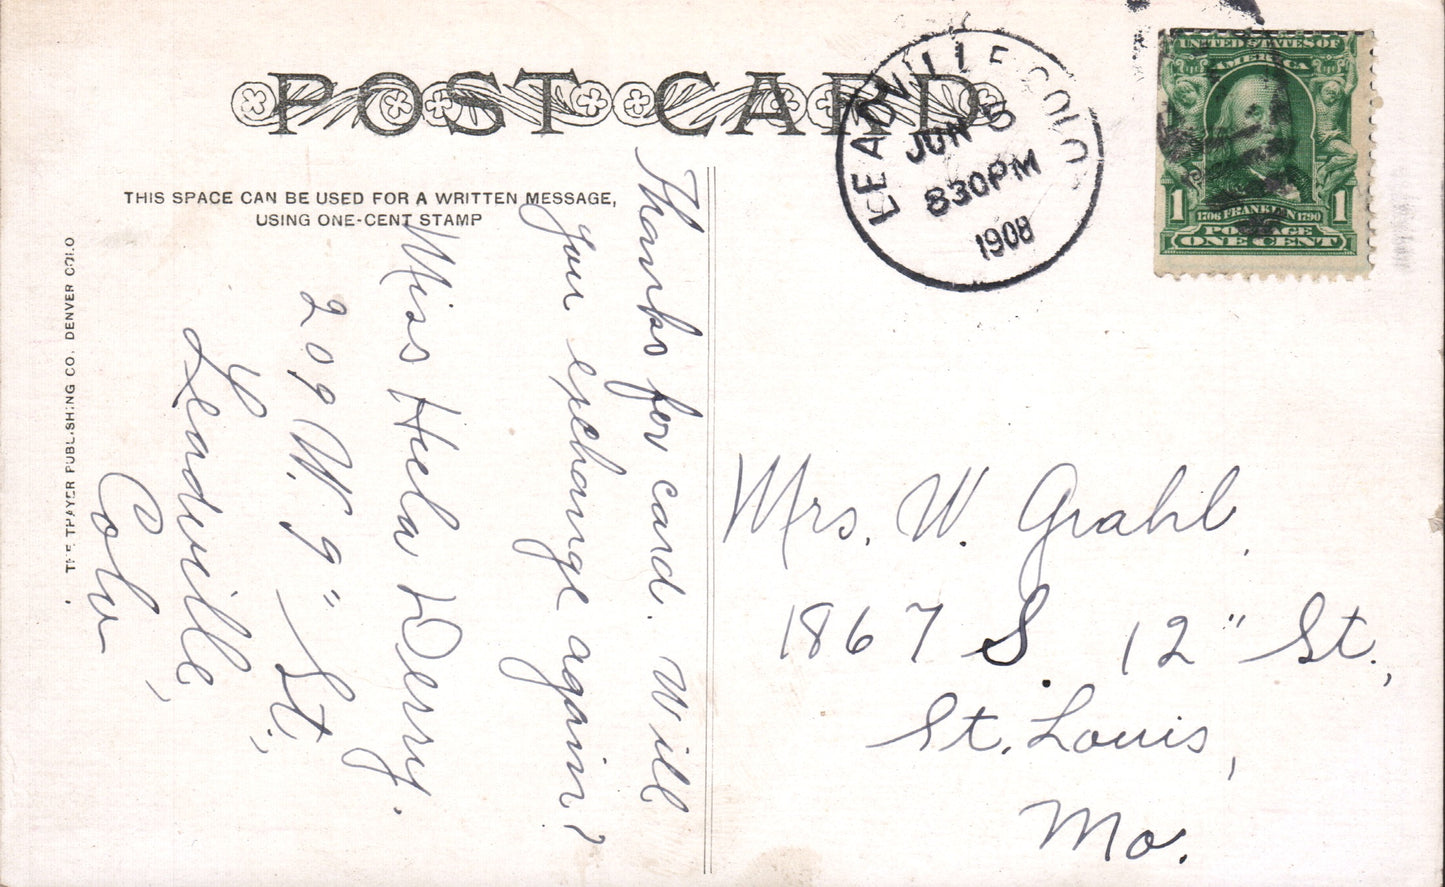 POST CARD
THIS SPACE CAN BE USED FOR A WRITTEN MESSAGE,
USING ONE-CENT STAMP
THE THAYER PUBLISHING CO. DENVER COLO.
Thanks for card. Will
you exchange again?
Miss Heela Derry.
209 W. 9" St.,
Leadville,
Colo
LEADVILLE COLO.
JUN 5
830PM
1908
UNITED STATES OF
AMERICA
1 1706 FRANKLIN 1790 1
POSTAGE
ONE CENT
Mrs. W. Grahl,
1867 S. 12" St.,
St. Louis,
Mo.